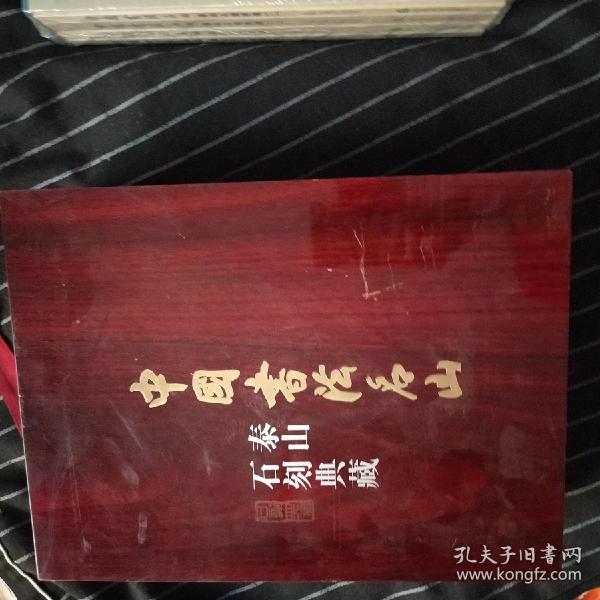 中國書法名山
泰山
石刻典藏
孔夫子旧书网
www.kongfz.com